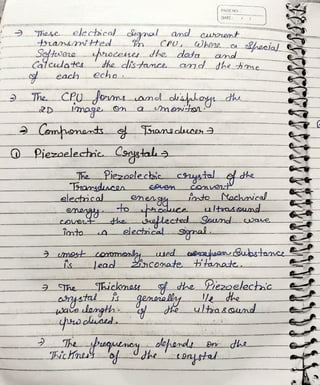 PAGE NO.:
DATE: / /
→ These electrical signal and current
transmitted in CPU, where a special
Software processes the data and
Calculates the distance and the time
of each echo.
→ The CPU forms and displays the
2D image on a monitor.
→ Components of Transducer →
① Piezoelectric Crystal →
The Piezoelectric crystal of the
Transducer convert
electrical energy into Mechnical
energy to produce ultrasound
covert the reflected Sound wave
into a electrical signal.
→ most commonly used Substance
is lead zirconate titanate.
→ The Thickness of the Piezoelectric
crystal is generally 1/2 the
wave length of the ultrasound
produced.
→ The frequency depends on the
Thickness of the crystal